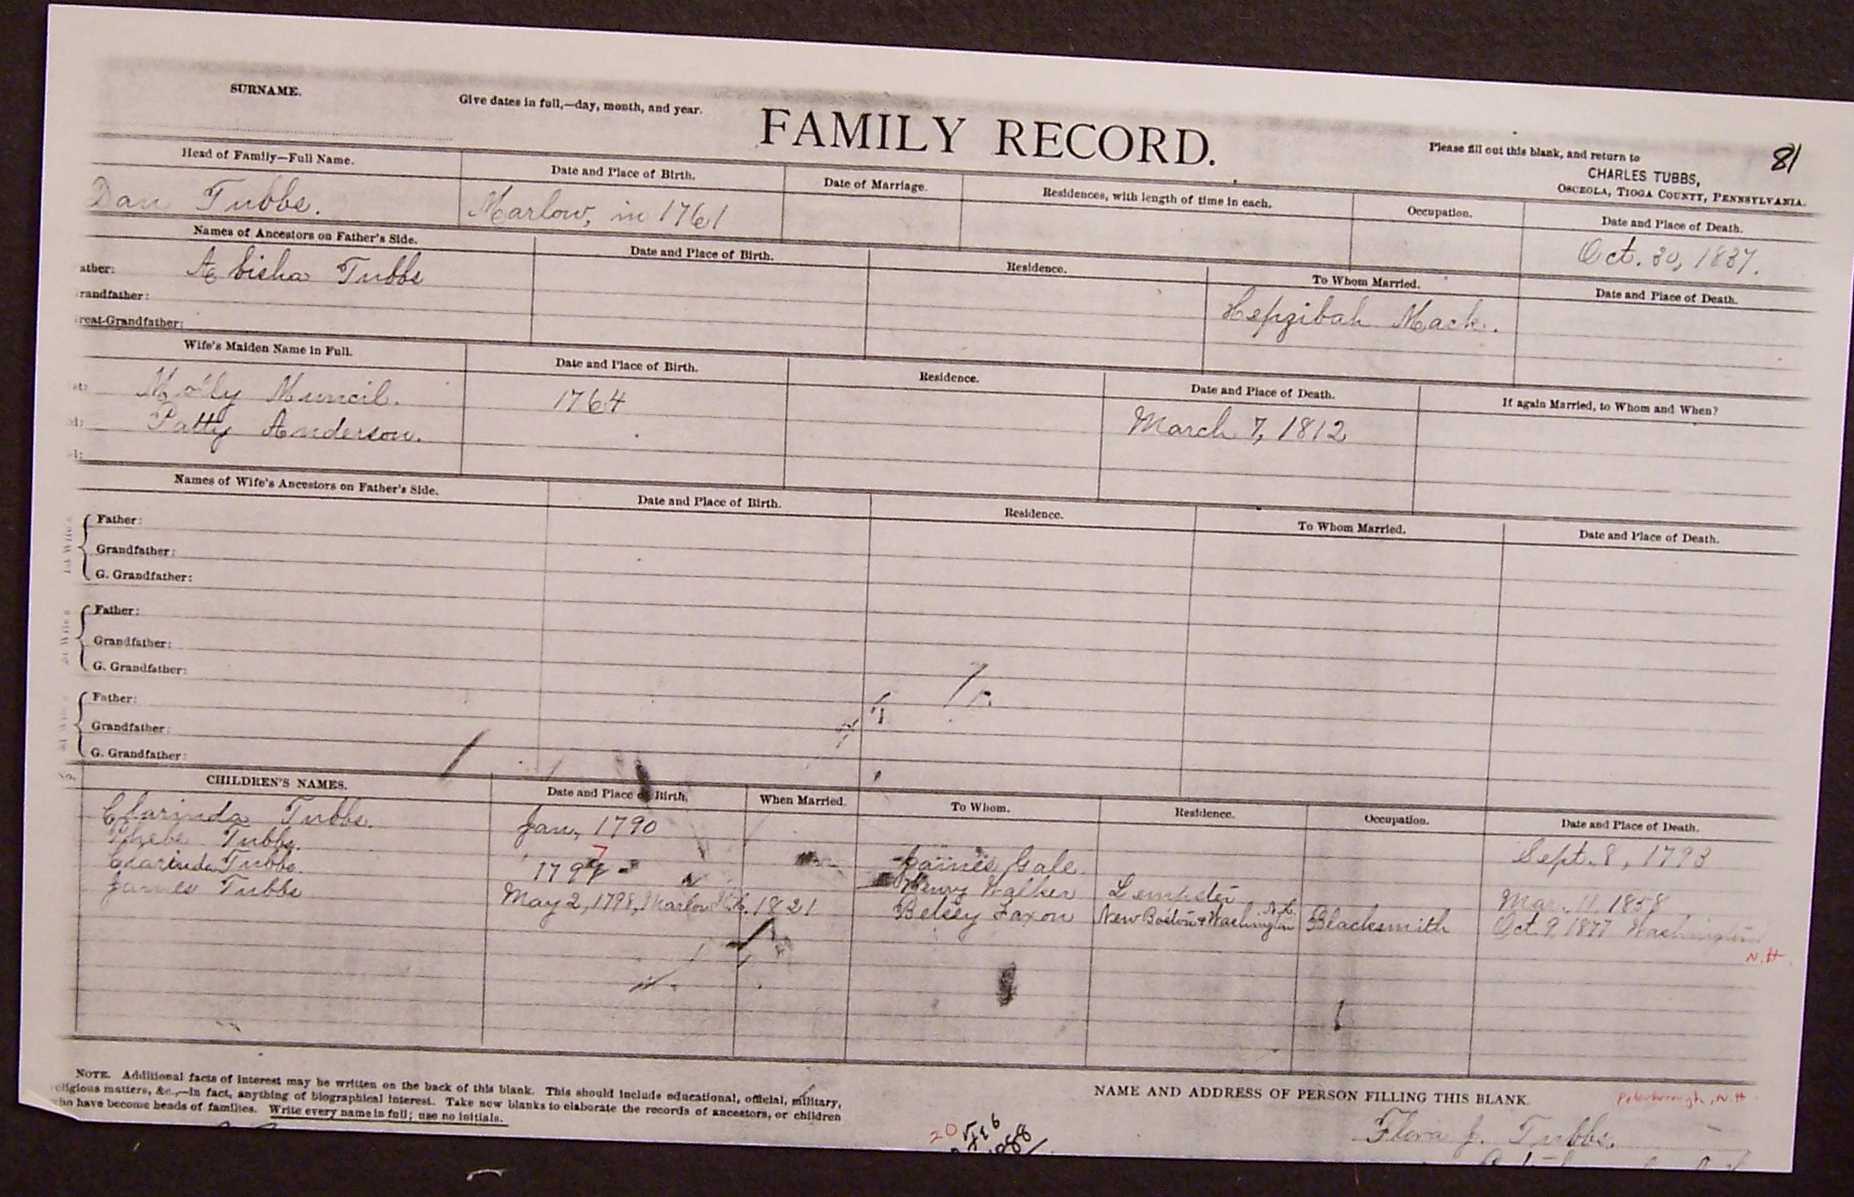 SURNAME.
Give dates in full,—day, month, and year.
FAMILY RECORD.
Please fill out this blank, and return to
CHARLES TUBBS,
OSCEOLA, TIOGA COUNTY, PENNSYLVANIA.
81
Head of Family—Full Name. Date and Place of Birth. Date of Marriage. Residences, with length of time in each. Occupation. Date and Place of Death.
Dan Tubbs. Marlow, in 1761 Oct. 30, 1837.
Names of Ancestors on Father's Side. Date and Place of Birth. Residence. To Whom Married. Date and Place of Death.
ather: Abisha Tubbs Hepzibah Mack.
randfather:
reat-Grandfather:
Wife's Maiden Name in Full. Date and Place of Birth. Residence. Date and Place of Death. If again Married, to Whom and When?
Molly Muncil. 1764 March 7, 1812
Patty Anderson.
Names of Wife's Ancestors on Father's Side. Date and Place of Birth. Residence. To Whom Married. Date and Place of Death.
Father:
Grandfather:
G. Grandfather:
Father:
Grandfather:
G. Grandfather:
Father:
Grandfather:
G. Grandfather:
CHILDREN'S NAMES. Date and Place of Birth. When Married. To Whom. Residence. Occupation. Date and Place of Death.
Clarinda Tubbs. Jan, 1790 Sept. 8, 1793
Phebe Tubbs. James Gale.
Clarinda Tubbs. 1797 Henry Walker Lempster Mar. 11, 1858
James Tubbs May 2, 1798, Marlow N.H. 1821 Betsey Faxon New Boston & Washington N.H. Blacksmith Oct. 9, 1877 Washington
N.H.
NOTE. Additional facts of interest may be written on the back of this blank. This should include educational, official, military,
eligious matters, &c.,—in fact, anything of biographical interest. Take new blanks to elaborate the records of ancestors, or children
ho have become heads of families. Write every name in full; use no initials.
NAME AND ADDRESS OF PERSON FILLING THIS BLANK.
Peterborough, N.H.
Flora J. Tubbs.
20